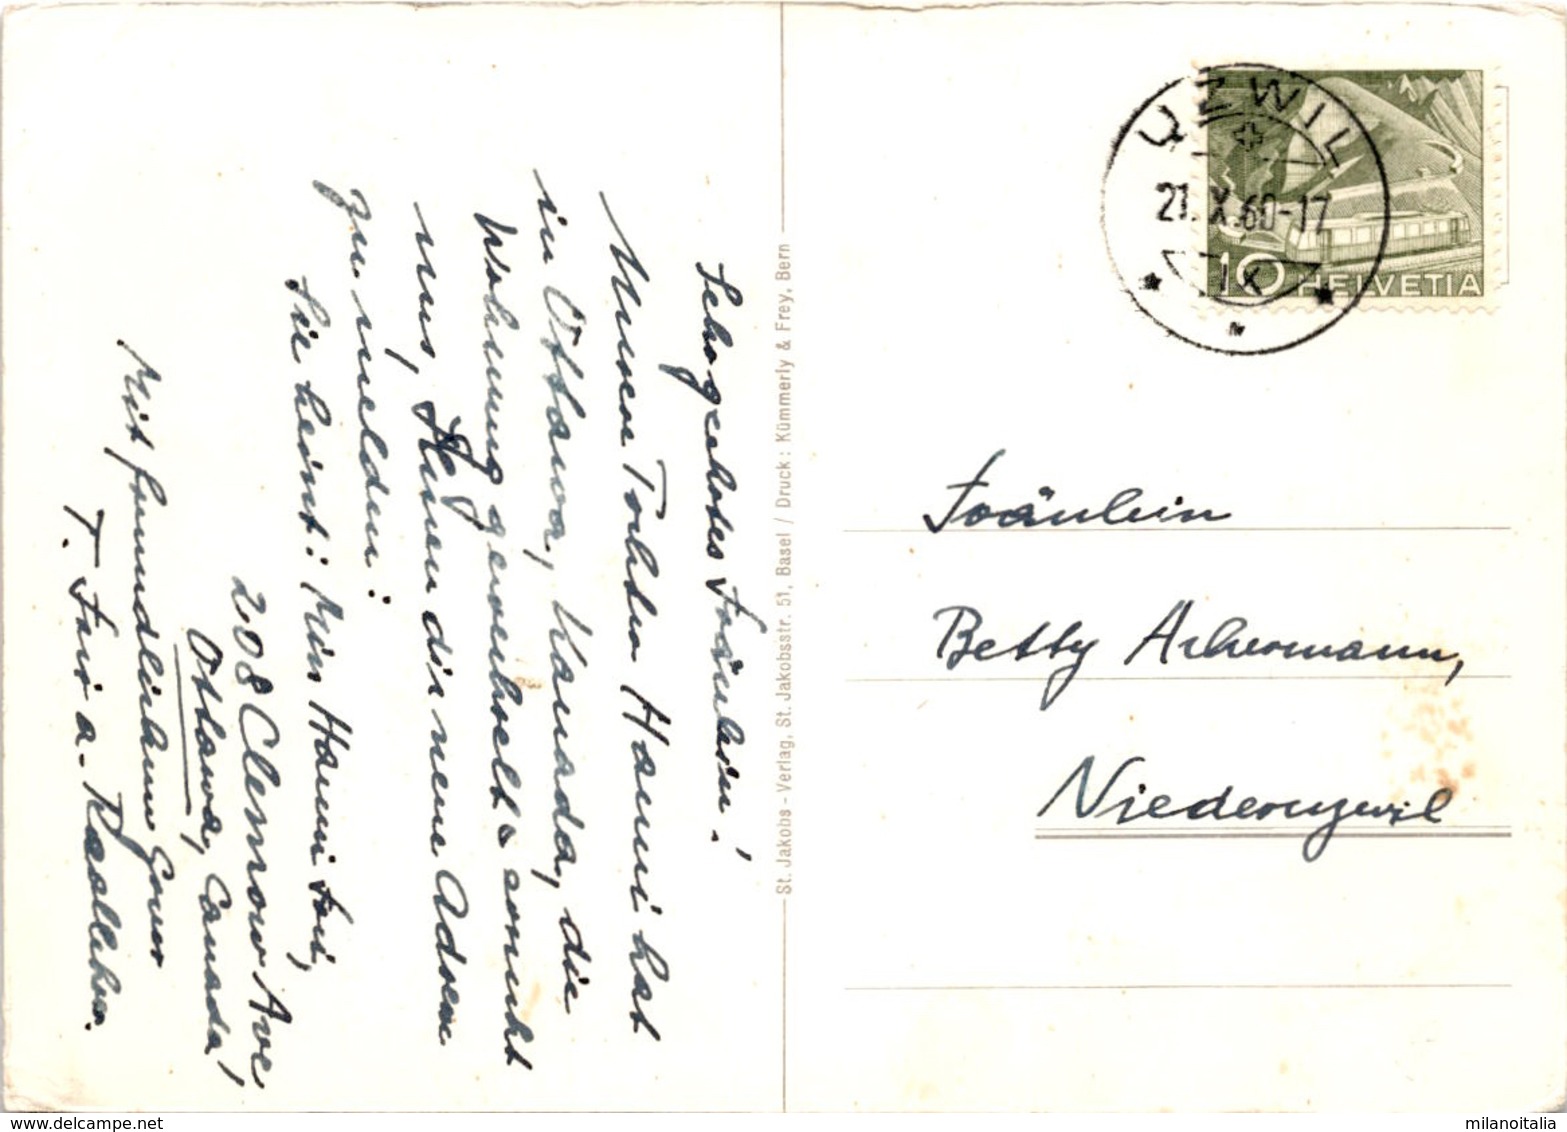 Sehrgeehrtes Fräulein!
Unsere Tochter Hanni hat
in Ottawa, Kanada, die
Wohnung gewechselt & ersucht
uns, Ihnen die neue Adresse
zu melden:
Sie heisst: Miss Hanni Frei,
208 Clemow Ave
Ottawa, Canada!
Mit freundlichem Gruss
T. Frei a. Reallehrer.
St. Jakobs-Verlag, St. Jakobsstr. 51, Basel / Druck: Kümmerly & Frey, Bern
UZWIL
21.X.60-17
IX
10 HELVETIA
Fräulein
Betty Ackermann,
Niederuzwil
milanoitalia
www.delcampe.net